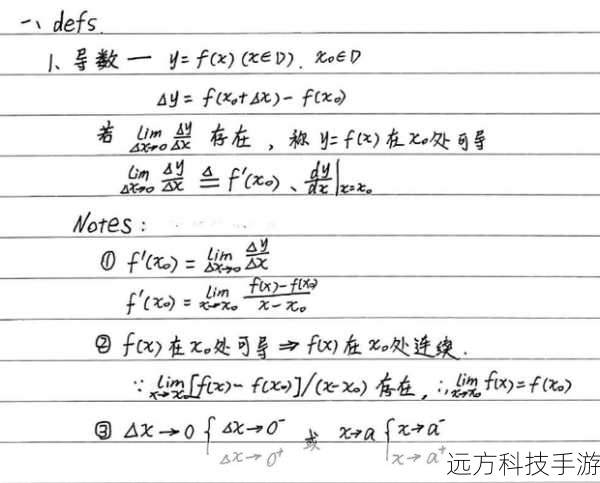 一、defs.
1、导数 — y=f(x) (x∈D). x₀∈D
Δy = f(x₀+Δx) - f(x₀)
若 lim_{Δx→0} Δy/Δx 存在，称 y=f(x) 在 x₀ 处可导
lim_{Δx→0} Δy/Δx ≜ f'(x₀)、dy/dx|_{x=x₀}
Notes:
① f'(x₀) = lim_{Δx→0} Δy/Δx
f'(x₀) = lim_{x→x₀} (f(x)-f(x₀))/(x-x₀)
② f(x) 在 x₀ 处可导 ⇒ f(x) 在 x₀ 处连续.
∵ lim_{x→x₀} [f(x)-f(x₀)]/(x-x₀) 存在，∴ lim_{x→x₀} f(x)=f(x₀)
③ Δx→0 { Δx→0⁻ 或 x→a { x→a⁻
Δx→0⁺ x→a⁺
远方科技手游